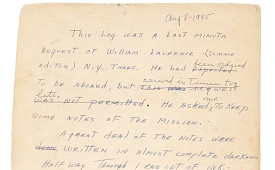 Aug 8-1945
This Log was a last minute
request of William Laurence (Science
editor) N.Y. Times. He had been ordered expected
to be aboard, but arrived in Tinian too
late. this was request
was not permitted. He asked me to keep
some notes of the Mission.
A great deal of the notes were
written in almost complete darkness
Half way Through I ran out of ink.